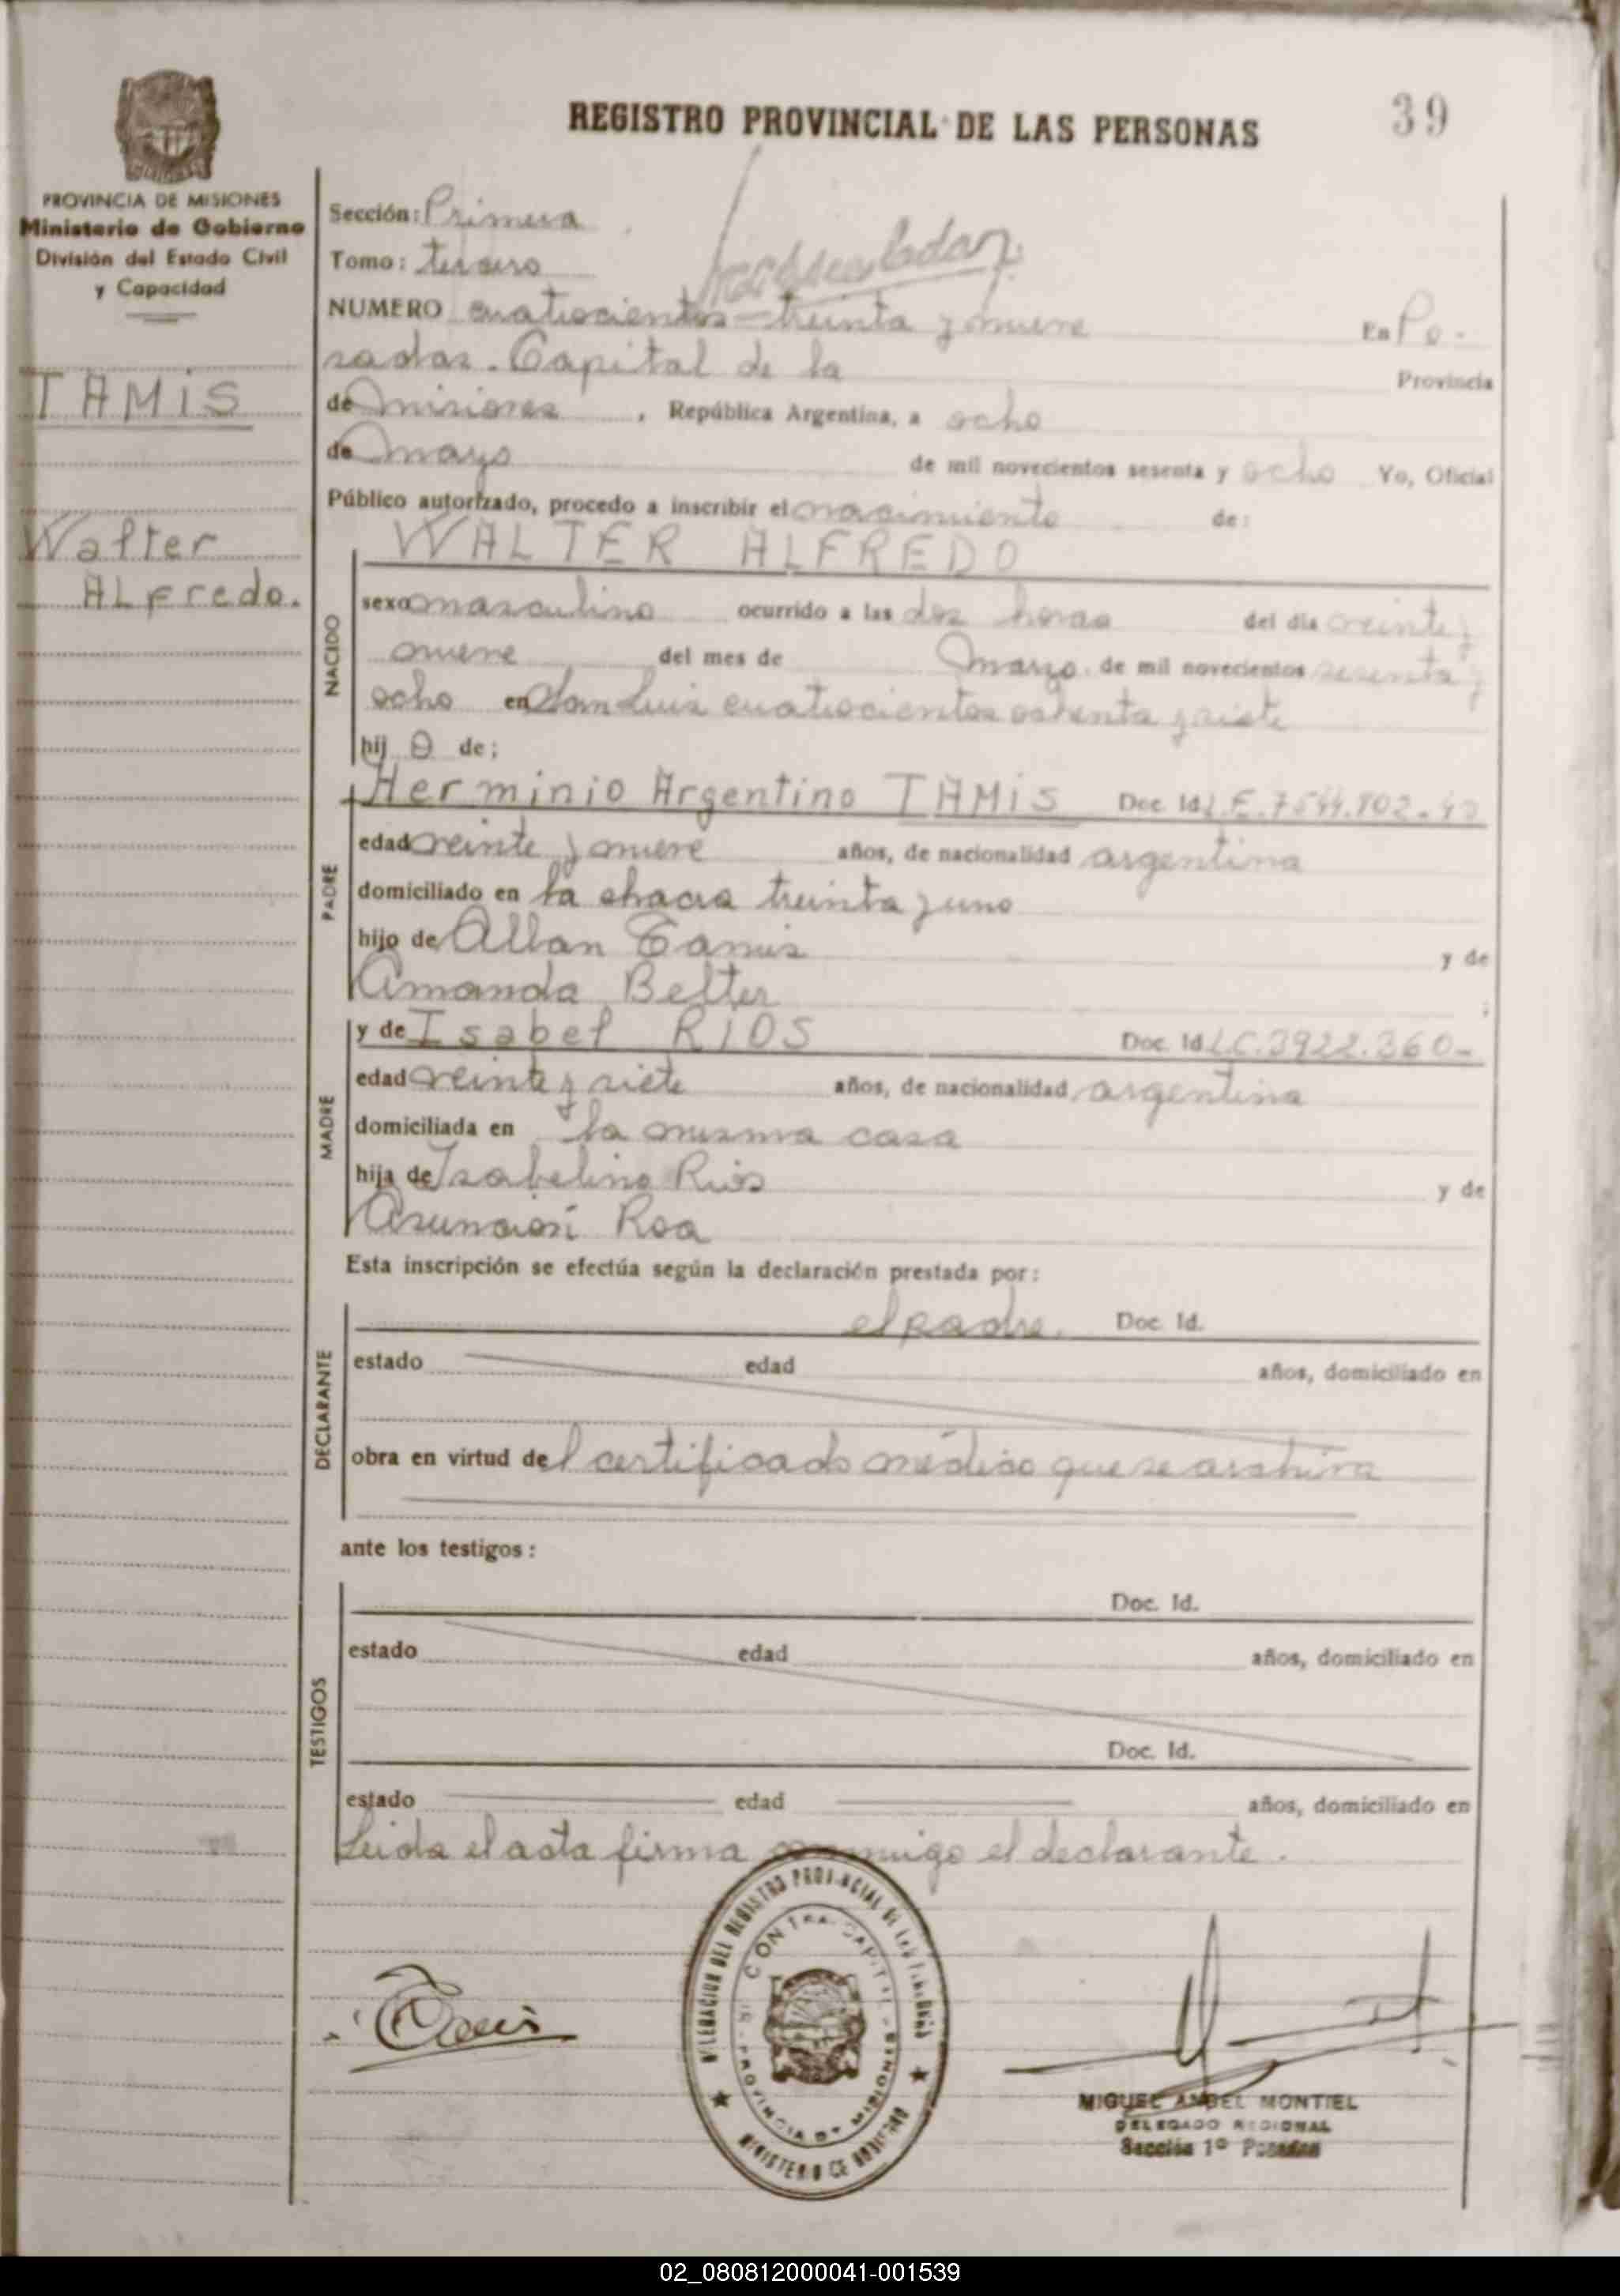 REGISTRO PROVINCIAL DE LAS PERSONAS
39
PROVINCIA DE MISIONES
Ministerio de Gobierno
División del Estado Civil
y Capacidad
TAMiS
Walter
ALFredo.
Sección: Primera
Tomo: tercero
NUMERO cuatrocientos treinta y nueve En Po-
sadas. Capital de la Provincia
de misiones, República Argentina, a ocho
de mayo de mil novecientos sesenta y ocho Yo, Oficial
Público autorizado, procedo a inscribir el nacimiento de:
WALTER ALFREDO
NACIDO
sexo masculino ocurrido a las dos horas del día veinte y
nueve del mes de marzo de mil novecientos sesenta y
ocho en San Luis cuatrocientos ochenta y siete
hij o de;
PADRE
Herminio Argentino TAMiS Doc. Id. L.E.7544.802
edad veinte y nueve años, de nacionalidad argentina
domiciliado en la chacra treinta y uno
hijo de Alban Tamis y de
Amanda Belter ;
MADRE
y de Isabel RIOS Doc. Id L.C.3922.360-
edad veinte y siete años, de nacionalidad argentina
domiciliada en la misma casa
hija de Isabelino Rios y de
Asunción Roa
Esta inscripción se efectúa según la declaración prestada por:
DECLARANTE
el padre. Doc. Id.
estado edad años, domiciliado en
obra en virtud del certificado médico que se archiva
ante los testigos:
TESTIGOS
Doc. Id.
estado edad años, domiciliado en
Doc. Id.
estado edad años, domiciliado en
Leida el acta firma conmigo el declarante.
DELEGACION DEL REGISTRO PROVINCIAL DE LAS PERSONAS
PROVINCIA DE MISIONES
MINISTERIO DE GOBIERNO
MIGUEL ANGEL MONTIEL
DELEGADO REGIONAL
Sección 1º Posadas
02_080812000041-001539